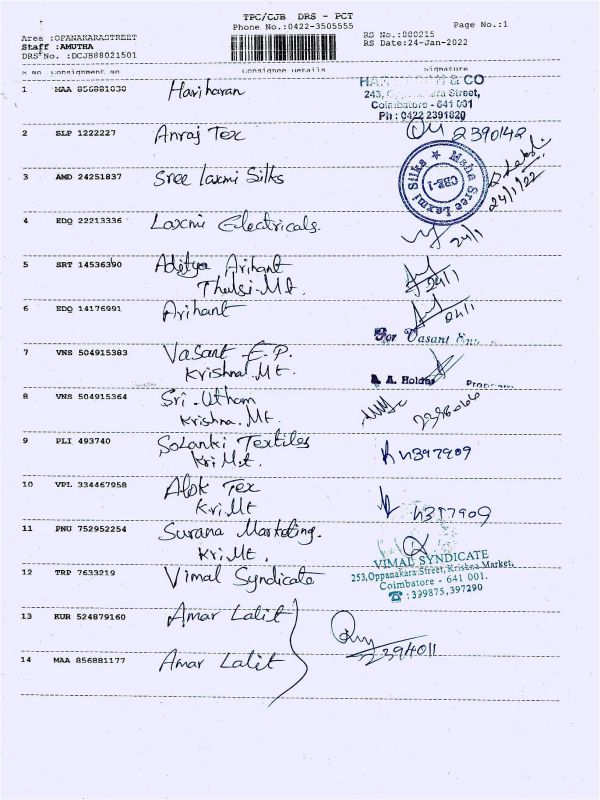 TPC/CJB DRS - PCT
Phone No.:0422-3505555
Page No.:1
Area :OPANAKARASTREET
Staff :AMUTHA
DRS No. :DCJB88021501
RS No.:880215
RS Date:24-Jan-2022
S No Consignment No Consignee Details Signature
1 MAA 856881030 Hariharan
& CO
243, Street,
Coimbatore - 641 001
Ph : 0422 2391820
2 SLP 1222227 Anraj Tex 2390142
3 AMD 24251837 Sree Laxmi Silks
Maha Sree Laxmi Silks ★
CBE-1
24/1/22
4 EDQ 22213336 Laxmi Electricals. 24/1
5 SRT 14536390 Aditya Arihant
Thulsi.Mt. 24/1
6 EDQ 14176991 Arihant 24/1
For Vasant
7 VNS 504915383 Vasant E.P.
Krishna.Mt.
A. Holder
8 VNS 504915364 Sri.Utham
Krishna.Mt.
9 PLI 493740 Solanki Textiles
Kri.Mt.
10 VPL 334467958 Alok Tex
Kri.Mt
11 PNU 752952254 Surana Marketing.
Kri.Mt.
12 TRP 7633219 Vimal Syndicate
VIMAL SYNDICATE
253,Oppanakara Street, Krishna Market,
Coimbatore - 641 001.
☎ : 399875,397290
13 KUR 524879160 Amar Lalit
2394011
14 MAA 856881177 Amar Lalit